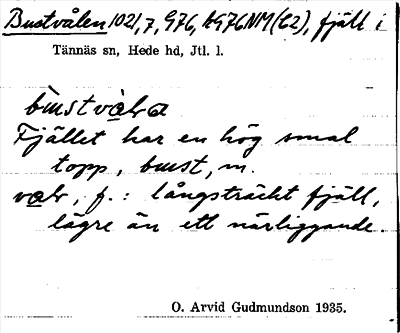 Bustvålen 1021,7, 976, A976NM(C2), fjäll i
Tännäs sn, Hede hd, Jtl. l.
Fjället har en hög smal
topp, bust, m.
f.: långsträckt fjäll,
lägre än ett närliggande.
O. Arvid Gudmundson 1935.